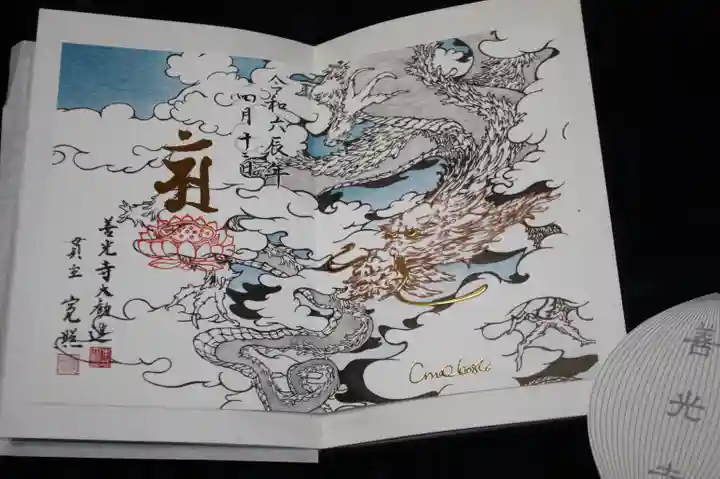 令和六辰年
四月十二日
善光寺大勧進
貫主 寛照
善光寺